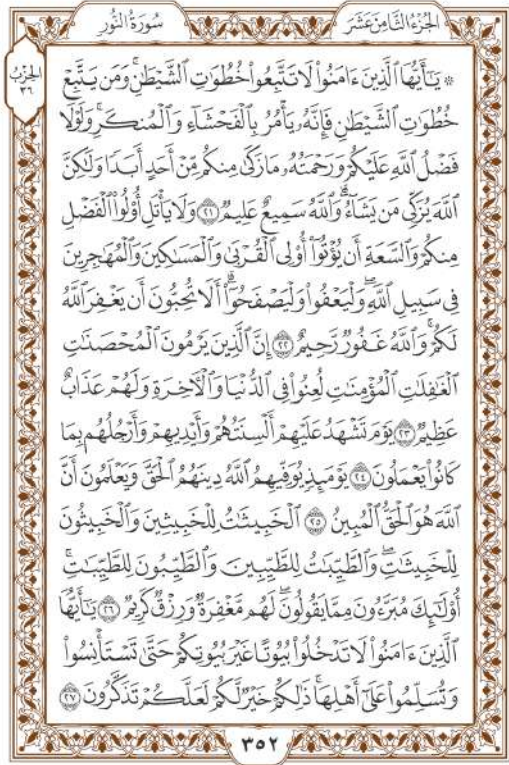 الجُزْءُ الثَّامِنَ عَشَرَ
سُورَةُ النُّورِ
الحِزْبُ
٣٦
۞ يَٰٓأَيُّهَا ٱلَّذِينَ ءَامَنُوا۟ لَا تَتَّبِعُوا۟ خُطُوَٰتِ ٱلشَّيْطَٰنِ ۚ وَمَن يَتَّبِعْ
خُطُوَٰتِ ٱلشَّيْطَٰنِ فَإِنَّهُۥ يَأْمُرُ بِٱلْفَحْشَآءِ وَٱلْمُنكَرِ ۚ وَلَوْلَا
فَضْلُ ٱللَّهِ عَلَيْكُمْ وَرَحْمَتُهُۥ مَا زَكَىٰ مِنكُم مِّنْ أَحَدٍ أَبَدًا وَلَٰكِنَّ
ٱللَّهَ يُزَكِّى مَن يَشَآءُ ۗ وَٱللَّهُ سَمِيعٌ عَلِيمٌ ٢١ وَلَا يَأْتَلِ أُو۟لُوا۟ ٱلْفَضْلِ
مِنكُمْ وَٱلسَّعَةِ أَن يُؤْتُوٓا۟ أُو۟لِى ٱلْقُرْبَىٰ وَٱلْمَسَٰكِينَ وَٱلْمُهَٰجِرِينَ
فِى سَبِيلِ ٱللَّهِ ۖ وَلْيَعْفُوا۟ وَلْيَصْفَحُوٓا۟ ۗ أَلَا تُحِبُّونَ أَن يَغْفِرَ ٱللَّهُ
لَكُمْ ۗ وَٱللَّهُ غَفُورٌ رَّحِيمٌ ٢٢ إِنَّ ٱلَّذِينَ يَرْمُونَ ٱلْمُحْصَنَٰتِ
ٱلْغَٰفِلَٰتِ ٱلْمُؤْمِنَٰتِ لُعِنُوا۟ فِى ٱلدُّنْيَا وَٱلْءَاخِرَةِ وَلَهُمْ عَذَابٌ
عَظِيمٌ ٢٣ يَوْمَ تَشْهَدُ عَلَيْهِمْ أَلْسِنَتُهُمْ وَأَيْدِيهِمْ وَأَرْجُلُهُم بِمَا
كَانُوا۟ يَعْمَلُونَ ٢٤ يَوْمَئِذٍ يُوَفِّيهِمُ ٱللَّهُ دِينَهُمُ ٱلْحَقَّ وَيَعْلَمُونَ أَنَّ
ٱللَّهَ هُوَ ٱلْحَقُّ ٱلْمُبِينُ ٢٥ ٱلْخَبِيثَٰتُ لِلْخَبِيثِينَ وَٱلْخَبِيثُونَ
لِلْخَبِيثَٰتِ ۖ وَٱلطَّيِّبَٰتُ لِلطَّيِّبِينَ وَٱلطَّيِّبُونَ لِلطَّيِّبَٰتِ ۚ
أُو۟لَٰٓئِكَ مُبَرَّءُونَ مِمَّا يَقُولُونَ ۖ لَهُم مَّغْفِرَةٌ وَرِزْقٌ كَرِيمٌ ٢٦ يَٰٓأَيُّهَا
ٱلَّذِينَ ءَامَنُوا۟ لَا تَدْخُلُوا۟ بُيُوتًا غَيْرَ بُيُوتِكُمْ حَتَّىٰ تَسْتَأْنِسُوا۟
وَتُسَلِّمُوا۟ عَلَىٰٓ أَهْلِهَا ۚ ذَٰلِكُمْ خَيْرٌ لَّكُمْ لَعَلَّكُمْ تَذَكَّرُونَ ٢٧
٣٥٢